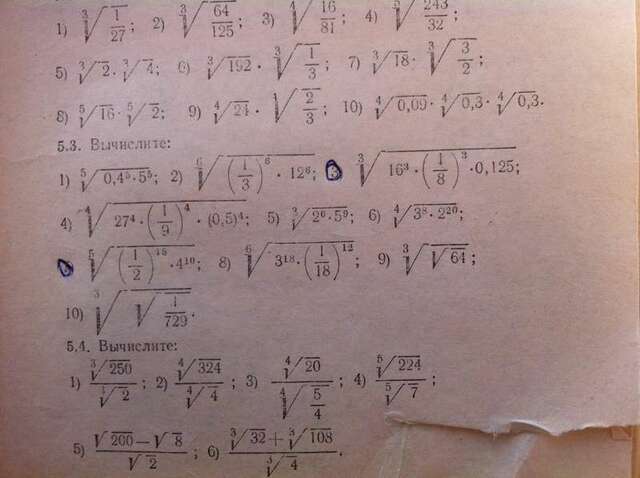 1) ∛(1/27); 2) ∛(64/125); 3) ⁴√(16/81); 4) ⁵√(243/32);
5) ∛2 · ∛4; 6) ∛192 · ∛(1/3); 7) ∛18 · ∛(3/2);
8) ⁵√16 · ⁵√2; 9) √24 · √(2/3); 10) ⁴√0,09 · ⁴√0,3 · ⁴√0,3.
5.3. Вычислите:
1) 2) ⁶√((1/3)⁶ · 12⁶); ∛(16³ · (1/8)³ · 0,125;
4) ⁴√(27⁴ · (1/9)⁴ · (0,5)⁴; 5) ∛(2⁶ · 5⁹; 6) ⁴√(3⁸ · 2²⁰;
⁵√((1/2)¹⁵ · 4¹⁰; 8) ⁶√(3¹⁸ · (1/18)¹²; 9) ∛√64;
10) ∛√(1/729).
5.4. Вычислите:
1) ∛250 / ∛2; 2) ⁴√324 / ⁴√4; 3) ⁴√20 / ⁴√(5/4); 4) ⁵√224 / ⁵√7;
5) (√200 − √8) / √2; 6) (∛32 + ∛108) / ∛4.